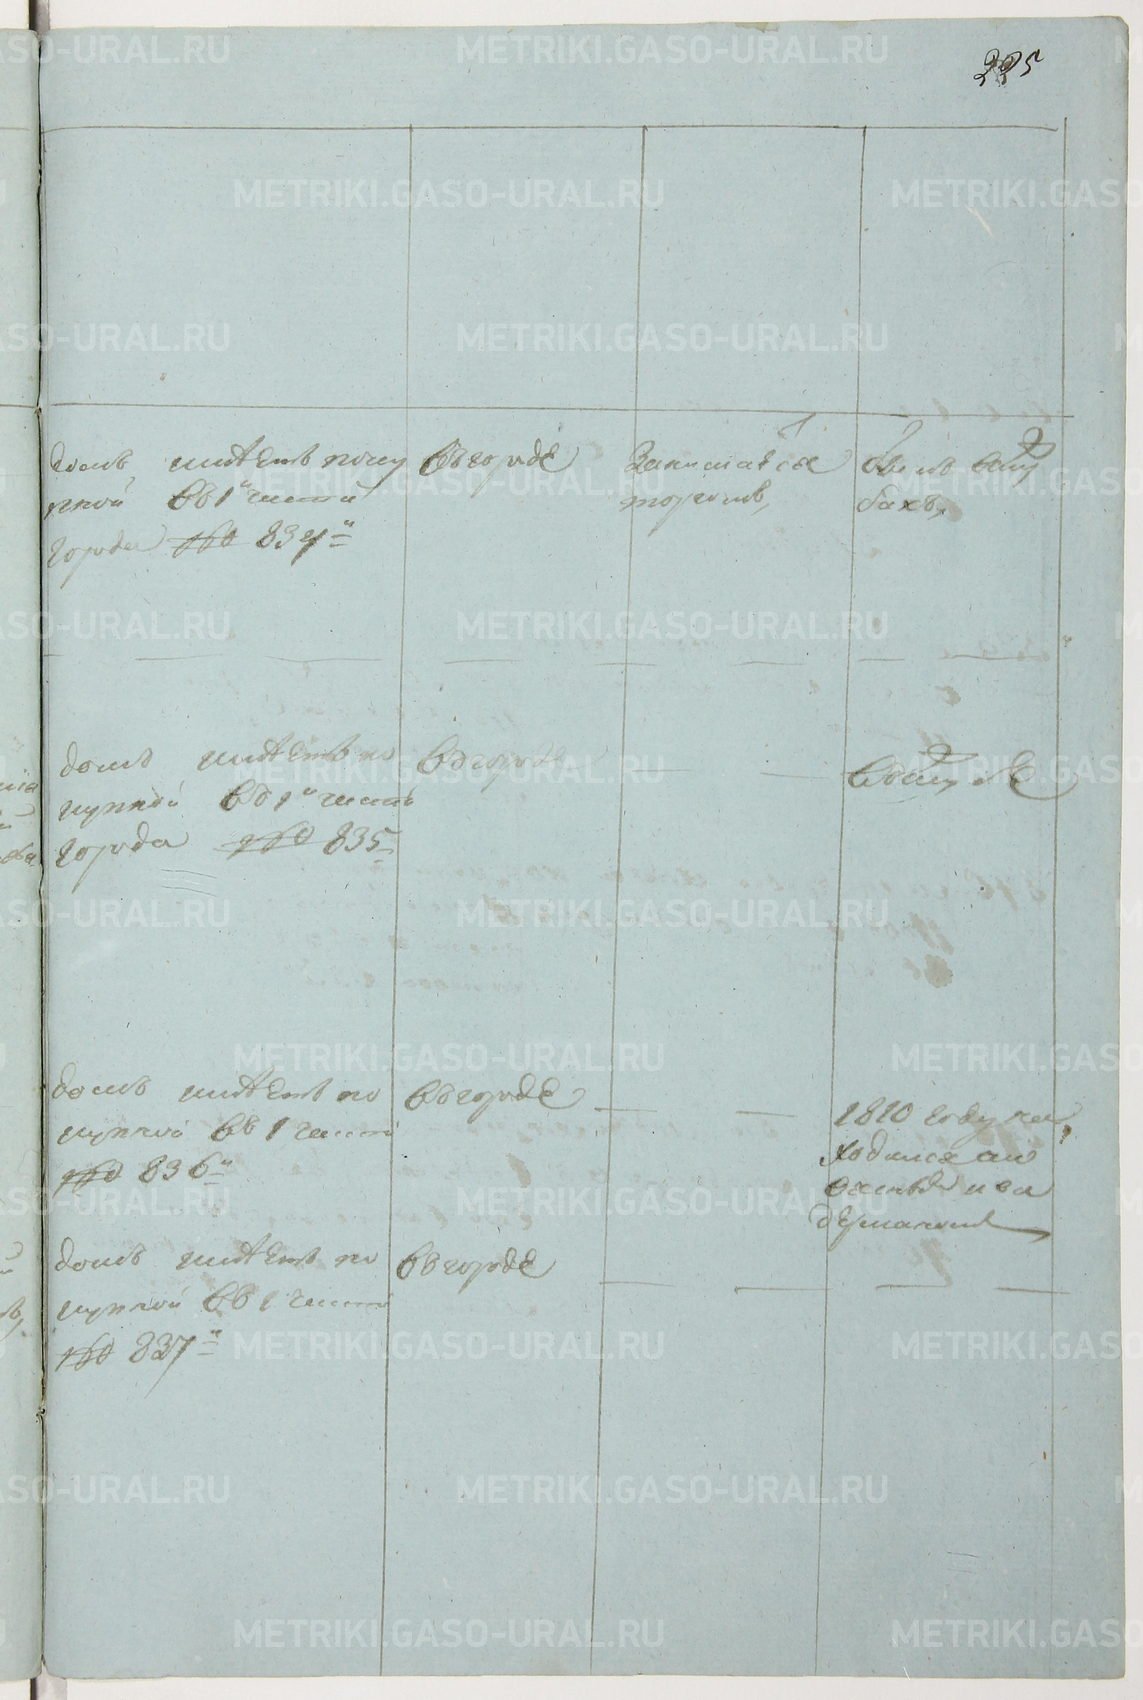 225
домъ имѣетъ поку
пной въ 1й части
города под № 834й
въ городѣ
Занимается
торгомъ,
былъ въ слу
жбахъ,
домъ имѣетъ по
купной въ 1й части
города под № 835
въ городѣ
домъ имѣетъ по
купной въ 1 части
под № 836й
въ городѣ
1810 году на
ходился
домъ имѣетъ по
купной въ 1 части
под № 837й
въ городѣ
METRIKI.GASO-URAL.RU